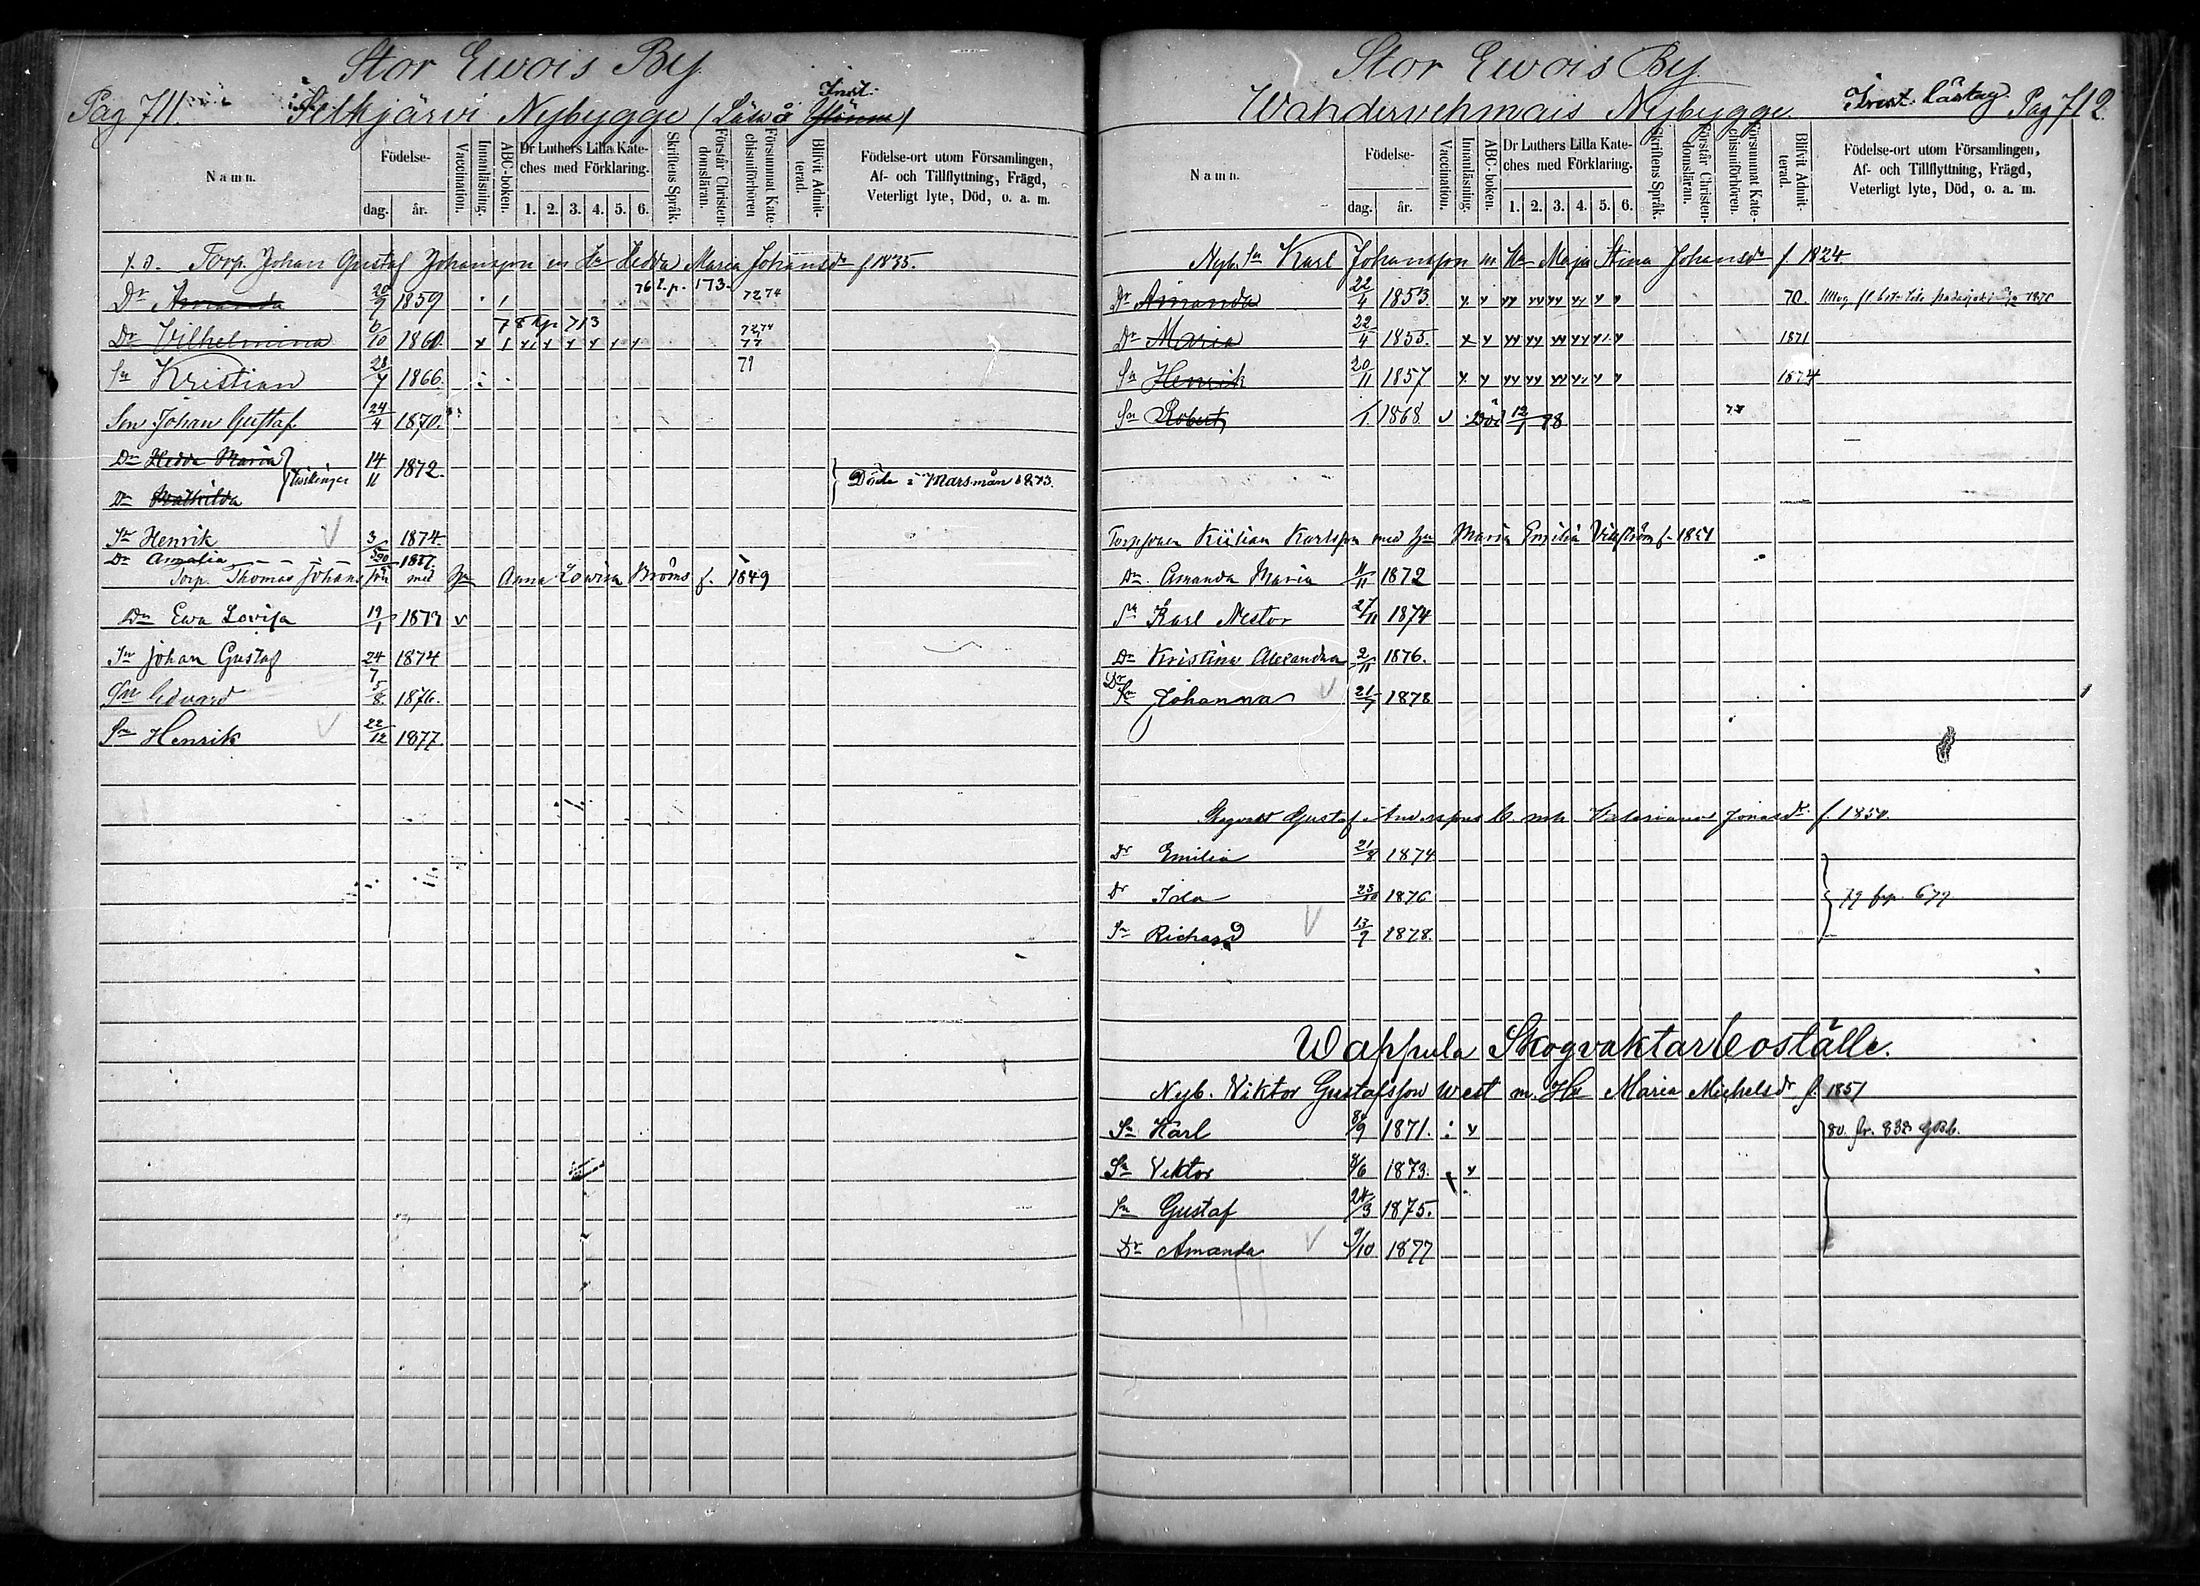 Stor Ewois By
Pag 711 Selkjärvi Nybygge (Läsa å Inst.)
Namn.
Födelse-
dag.
år.
Vaccination.
Innanläsning.
ABC-boken.
Dr Luthers Lilla Kate-
ches med Förklaring.
1. 2. 3. 4. 5. 6.
Skriftens Språk.
Förstår Christen-
domsläran.
Försummat Kate-
chismiförhören
Blifvit Admit-
terad.
Födelse-ort utom Församlingen,
Af- och Tillflyttning, Frägd,
Veterligt lyte, Död, o. a. m.
Torp. Johan Gustaf Johansson m Ha Hedda Maria Johansdr f 1835.
Dr Amanda 20/9 1859 76 t.p. 173. 72 74
Dr Vilhelmina 6/10 1860 78 tp 713 72 74 77
Sn Kristian 28/7 1866. 79
Son Johan Gustaf 24/4 1870.
Dr Hedda Maria 14/11 1872. Tvillingar
Dr Mathilda } Döda i Mars mån 1873.
Sn Henrik 3/ 1874.
Dr Amalia 1877.
Torp. Thomas Johansson med Hu Anna Lowisa Broms f. 1849
Dr Ewa Lovisa 19/1 1873 v
Sn Johan Gustaf 24/7 1874
Sn Edvard 5/8. 1876.
Sn Henrik 22/12 1877.
Stor Ewois By
Wahdervehmais Nybygge Inst. Lästag. Pag 712
Namn.
Födelse-
dag.
år.
Vaccination.
Innanläsning.
ABC-boken.
Dr Luthers Lilla Kate-
ches med Förklaring.
1. 2. 3. 4. 5. 6.
Skriftens Språk.
Förstår Christen-
domsläran.
Försummat Kate-
chismiförhören.
Blifvit Admit-
terad.
Födelse-ort utom Församlingen,
Af- och Tillflyttning, Frägd,
Veterligt lyte, Död, o. a. m.
Nyb. Sn Karl Johansson m Ha Maja Stina Johansdr f 1824.
Dr Amanda 22/4 1853. 70.
Dr Maria 22/4 1855. 1871
Sn Henrik 20/11 1857 1874
Sn Robert /1. 1868 v Död 12/1 78 77
Torpsonen Kristian Karlsson med Hu Maria Emilia f. 1851
Dr Amanda Maria 11/11 1872
Sn Karl Nestor 27/11 1874
Dr Kristina Alexandra 2/11 1876.
Dr Johanna 21/7 1878
Skogvakt Gustaf Andersson m h Valeriana Jonasdr f. 1850
Dr Emilia 21/8 1874
Dr Ida 23/10 1876 } 79 frp. 677
Sn Richard 13/9 1878.
Wappula Skogvaktar boställe.
Nyb. Viktor Gustafsson West m. Ha Maria Michelsdr f. 1851
Sn Karl 1871. 80. fr. 838
Sn Viktor 8/6 1873.
Sn Gustaf 24/3 1875.
Dr Amanda 9/10 1877